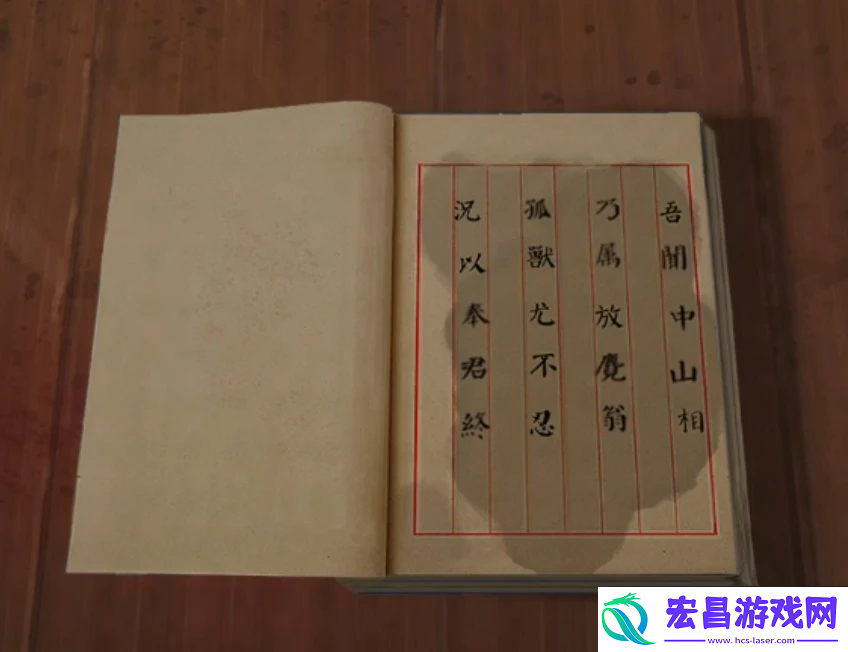 吾聞中山相
乃属放麑翁
孤獸尤不忍
況以奉君終
宏昌游戏网
www.hcs-laser.com